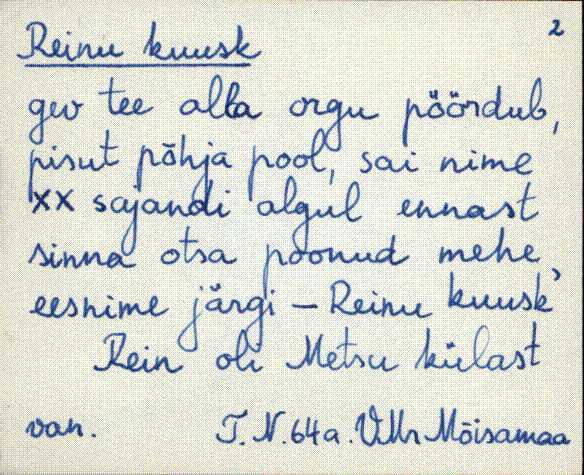 2
Reinu kuusk
tee alla orgu pöördub,
pisut põhja pool, sai nime
XX sajandi algul ennast
sinna otsa poonud mehe
eesnime järgi – Reinu kuusk
Rein oli Metsu külast
van. T. N. 64 a. VMr Mõisamaa